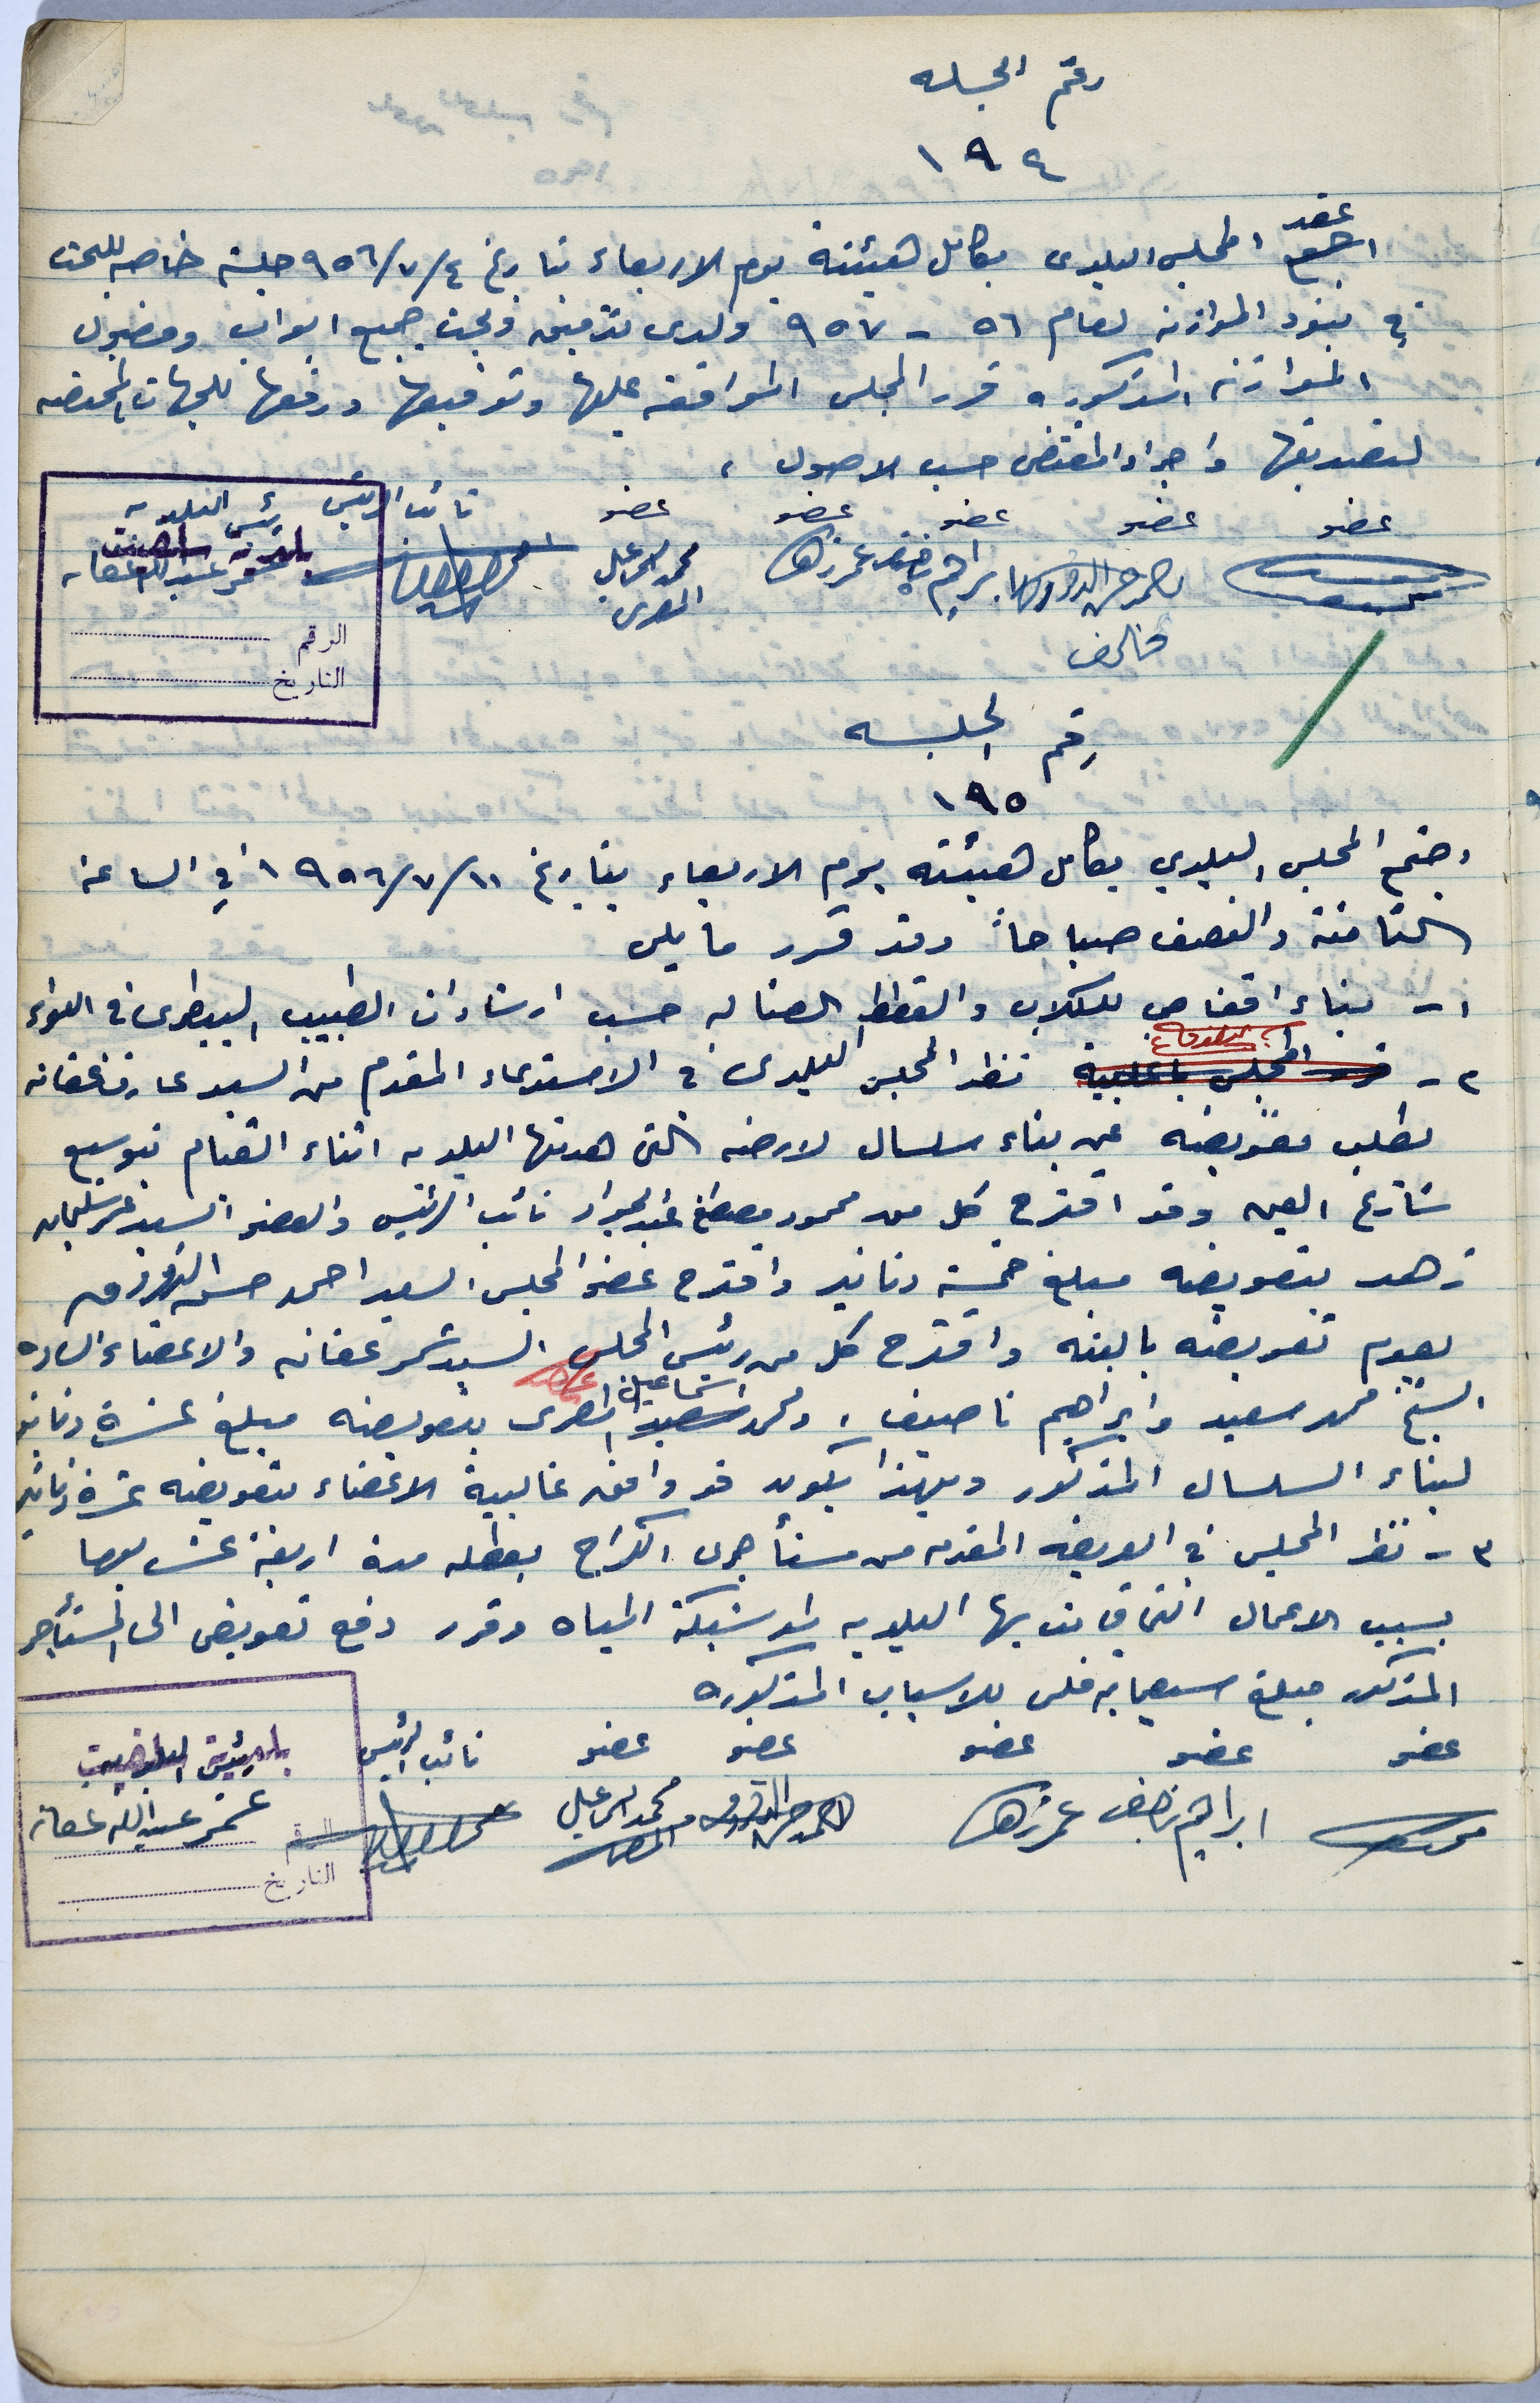 رقم الجلسه
١٩٤
عقد
اجتمع المجلس البلدى بكامل هيئته يوم الاربعاء بتاريخ ٩٥٦/٧/٤ جلسة خاصه للبحث
في بنود الموازنه لعام ٥٦ - ٩٥٧ ولدى تدقيق وبحث جميع ابواب وفصول
الموازنه المذكوره قرر المجلس الموافقه عليها وتوقيعها ورفعها للجهات المختصه
لتصديقها واجراء المقتضى حسب الاصول ،
عضو عضو عضو عضو عضو نائب الرئيس رئيس البلديه
ابراهيم ناصيف عمر زهد محمد اسماعيل المصرى عمر عبدالله عفانه
مخالف
الرقم
التاريخ
رقم الجلسه
١٩٥
اجتمع المجلس البلدي بكامل هيئته يوم الاربعاء بتاريخ ١٩٥٦/٧/١١ في الساعة
الثامنة والنصف صباحاً وقد قرر ما يلى
١- بناء اقفاص للكلاب والقطط الضاله حسب ارشادات الطبيب البيطرى في اللواء
٢- قرر المجلس باغلبية نظر المجلس البلدى في الاستدعاء المقدم من السيد عارف عفانه
بطلب تعويضه عن بناء سلسال لارضه التى هدمتها البلديه اثناء القيام بتوسيع
شارع العين وقد اقترح كل من محمود مصطفى عبدالجواد نائب الرئيس والعضو السيد عمر سليمان
زهد بتعويضه مبلغ خمسة دنانير واقترح عضو المجلس السيد احمد حسن
بعدم تعويضه بالبته واقترح كل من رئيس المجلس السيد عمر عفانه والاعضاء الساده
الشيخ محمد سعيد وابراهيم ناصيف ، ومحمد سعيد اسماعيل المصرى بتعويضه مبلغ عشرة دنانير
لبناء السلسال المذكور وبهذا يكون قد وافق غالبية الاعضاء بتعويضه عشرة دنانير
٣- نظر المجلس في العريضه المقدمه من مستأجرى الكراج بعطله مدة اربعة عشر يوما
بسبب الاعمال التى قامت بها البلديه لمد شبكة المياه وقرر دفع تعويض الى المستأجر
المذكور مبلغ سبعماية فلس للاسباب المذكوره
عضو عضو عضو عضو عضو نائب الرئيس رئيس البلديه
ابراهيم ناصيف عمر زهد محمد اسماعيل المصرى عمر عبدالله عفانه
الرقم
التاريخ